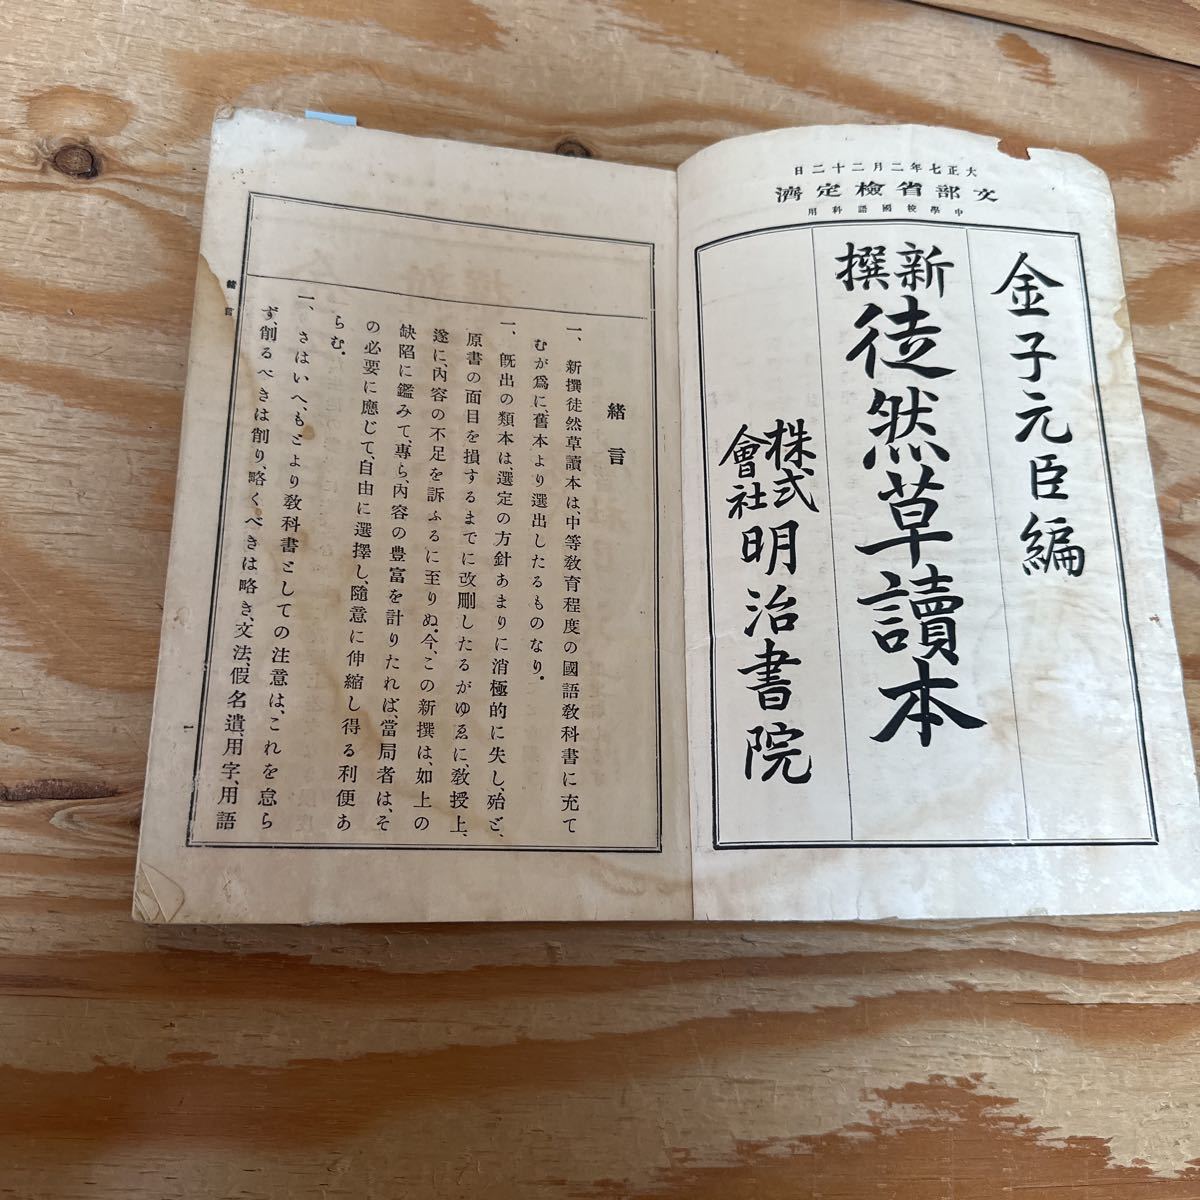 大正七年二月二十二日
文部省檢定濟
中學校國語科用
金子元臣編
新撰
徒然草讀本
株式會社
明治書院
緒言
一、新撰徒然草讀本は、中等教育程度の國語教科書に充て
むが爲に、舊本より選出したるものなり。
一、既出の類本は、選定の方針あまりに消極的に失し、殆ど、
原書の面目を損するまでに改刪したるがゆゑに、教授上、
遂に、内容の不足を訴ふるに至りぬ。今、この新撰は、如上の
缺陷に鑑みて、專ら、内容の豊富を計りたれば、當局者は、そ
の必要に應じて、自由に選擇し、隨意に伸縮し得る利便あ
らむ。
一、さはいへ、もとより教科書としての注意は、これを怠ら
ず、削るべきは削り、略くべきは略き、文法、假名遣、用字、用語
緒言
1